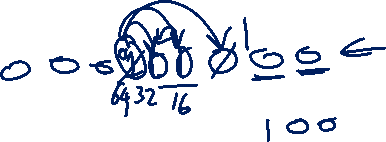 0 0 0 0 0 0 1 0 0
64 32 16
100